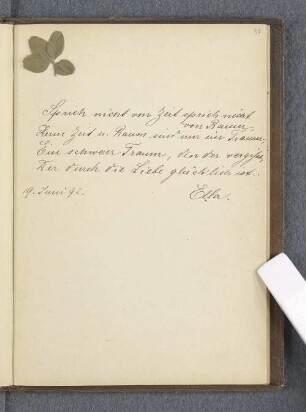 Sprich nicht von Zeit sprich nicht
von Raum,
Denn Zeit u. Raum sind nur ein Traum,
Ein schwerer Traum, den der vergißt,
Der durch die Liebe glücklich ist.
19. Juni 92.
Ella.